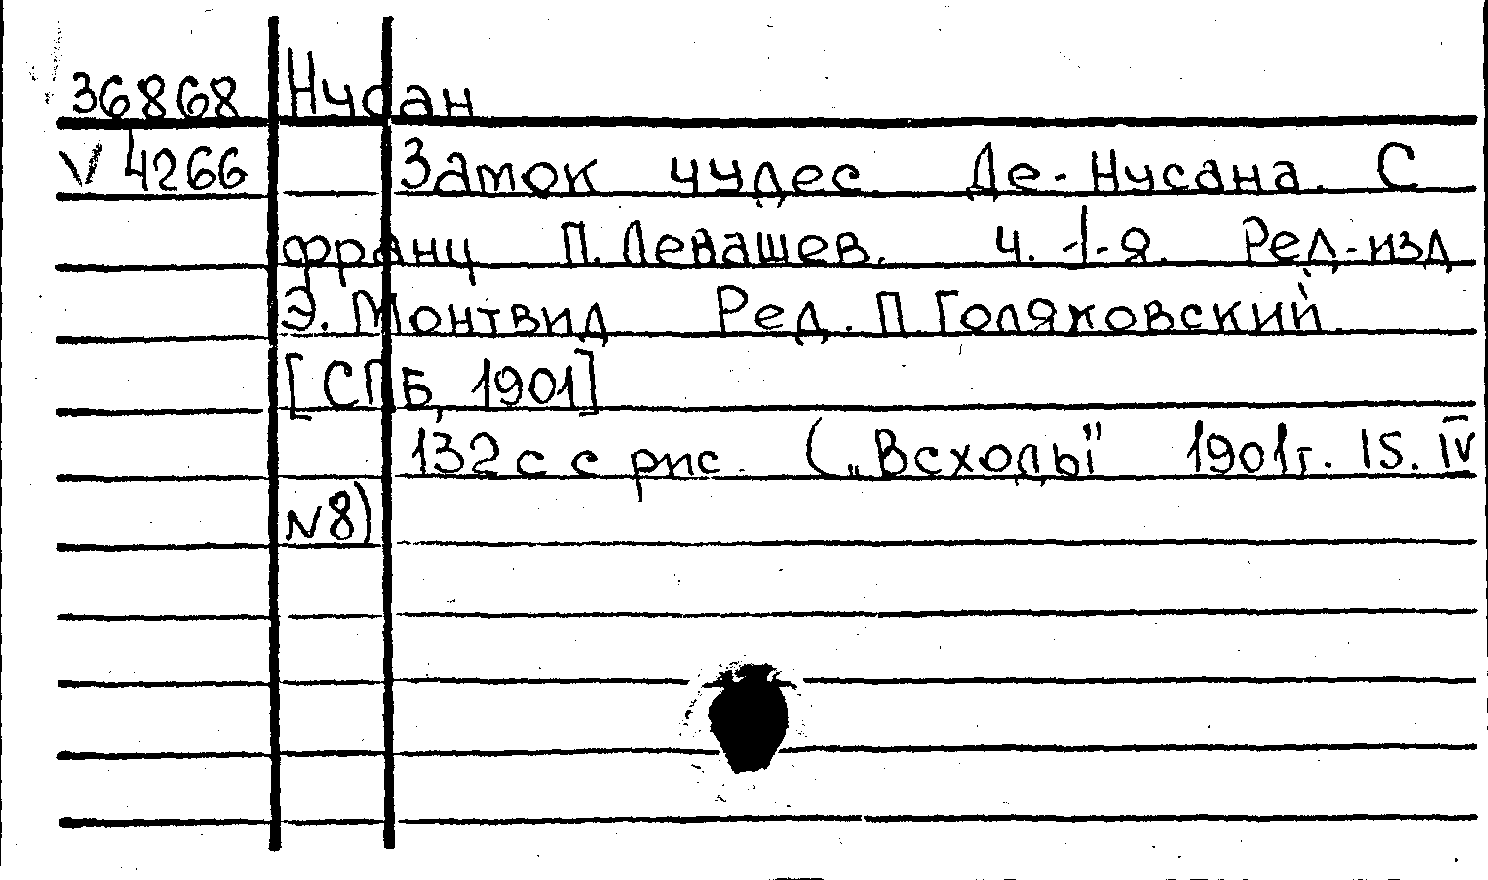 36868 Нусан
V 4266 Замок чудес Де-Нусана. С
франц П. Левашев. Ч. 1-я. Ред-изд
Э. Монтвид Ред. П. Голяховский
[СПБ, 1901]
132 с с рис. („Всходы" 1901г. 15. IV
N8)